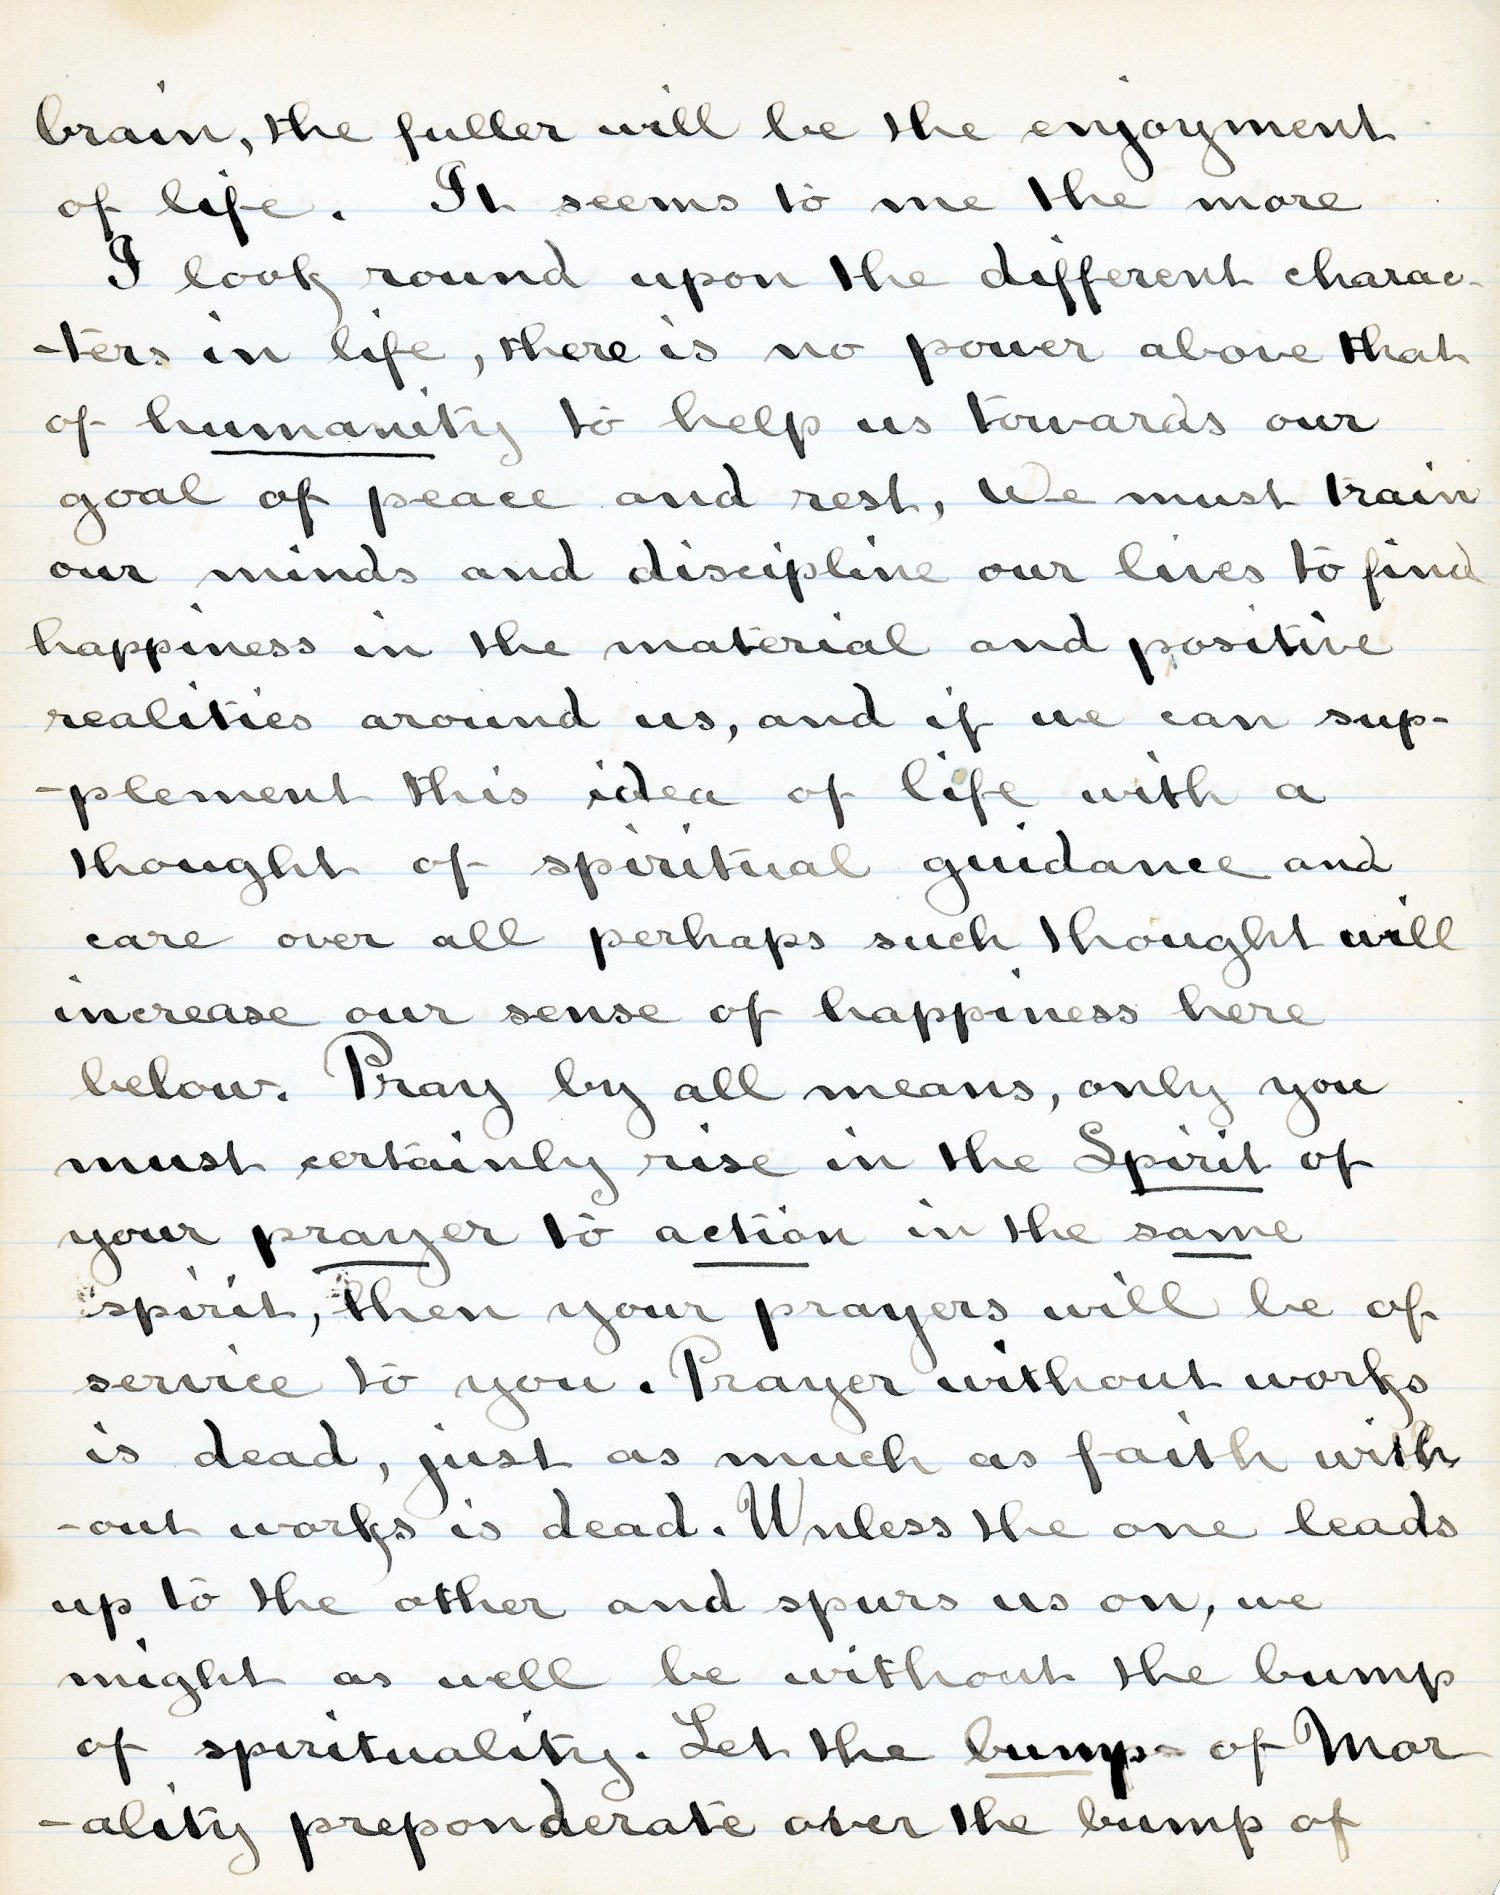 brain, the fuller will be the enjoyment
of life. It seems to me the more
I look round upon the different charac-
-ters in life, there is no power above that
of humanity to help us towards our
goal of peace and rest, We must train
our minds and discipline our lives to find
happiness in the material and positive
realities around us, and if we can sup-
-plement this idea of life with a
thought of spiritual guidance and
care over all perhaps such thought will
increase our sense of happiness here
below. Pray by all means, only you
must certainly rise in the Spirit of
your prayer to action in the same
spirit, then your prayers will be of
service to you. Prayer without works
is dead, just as much as faith with
-out works is dead. Unless the one leads
up to the other and spurs us on, we
might as well be without the bump
of spirituality. Let the bump of Mor
-ality preponderate over the bump of